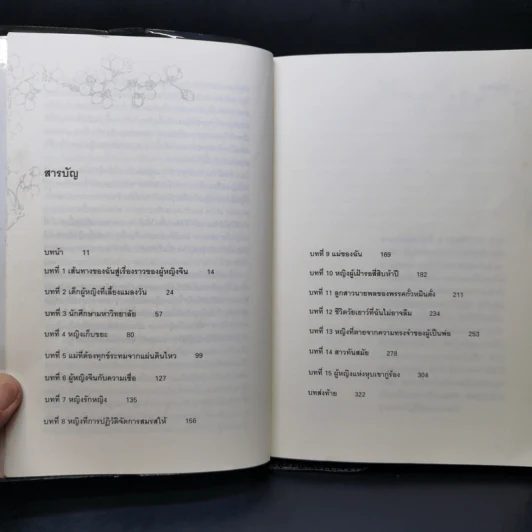 สารบัญ
บทนำ 11
บทที่ 1 เส้นทางของฉันสู่เรื่องราวของผู้หญิงจีน 14
บทที่ 2 เด็กผู้หญิงที่เลี้ยงแมลงวัน 24
บทที่ 3 นักศึกษามหาวิทยาลัย 57
บทที่ 4 หญิงเก็บขยะ 80
บทที่ 5 แม่ที่ต้องทุกข์ระทมจากแผ่นดินไหว 99
บทที่ 6 ผู้หญิงจีนกับความเชื่อ 127
บทที่ 7 หญิงรักหญิง 135
บทที่ 8 หญิงที่การปฏิวัติจัดการสมรสให้ 156
บทที่ 9 แม่ของฉัน 169
บทที่ 10 หญิงผู้เฝ้ารอสี่สิบห้าปี 182
บทที่ 11 ลูกสาวนายพลของพรรคก๊กมินตั๋ง 211
บทที่ 12 ชีวิตวัยเยาว์ที่ฉันไม่อาจลืม 234
บทที่ 13 หญิงที่ตายจากความทรงจำของผู้เป็นพ่อ 253
บทที่ 14 สาวทันสมัย 278
บทที่ 15 ผู้หญิงแห่งหุบเขากู่ร้อง 304
บทส่งท้าย 322